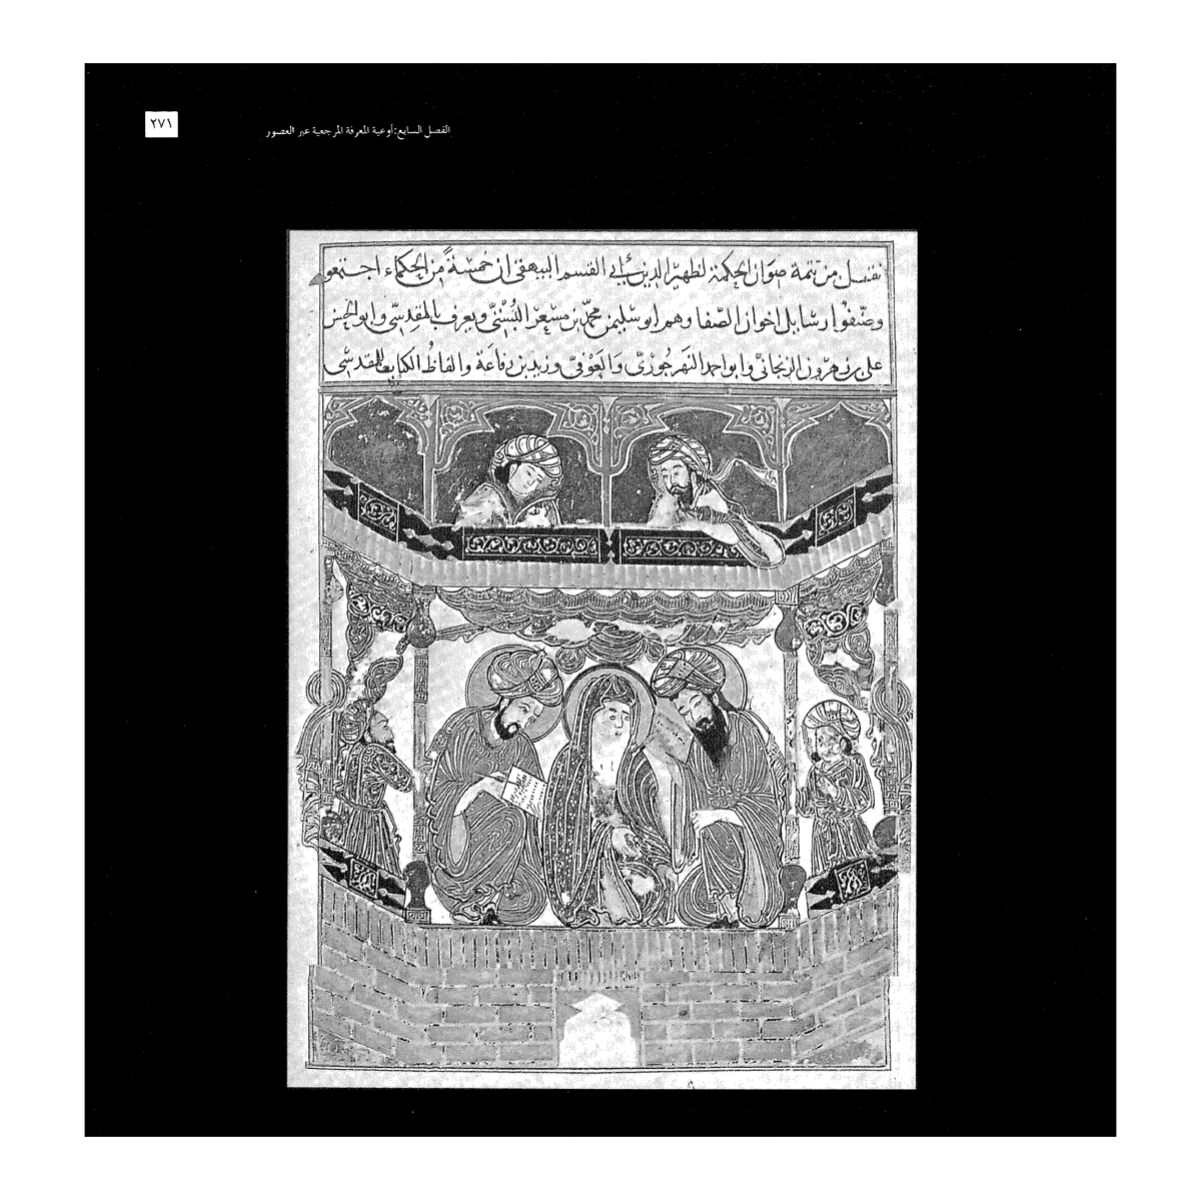 ٢٧١
الفصل السابع: أوعية المعرفة المرجعية عبر العصور
نقل من تتمة صوان الحكمة لظهير الدين بن أبي القسم البيهقي ان خمسةً من الحكماء اجتمعو
وصنّفوا رسايل اخوان الصّفا وهم ابو سليمن محمّد بن مسعر البُستيّ ويعرف بالمقدسّي وابو الحسن
علي بن هرون الزنجانيّ وابو احمد النهرجُوريّ والعَوْفيّ وزيد بن رفاعة والفاظُ الكتاب للمقدسّي